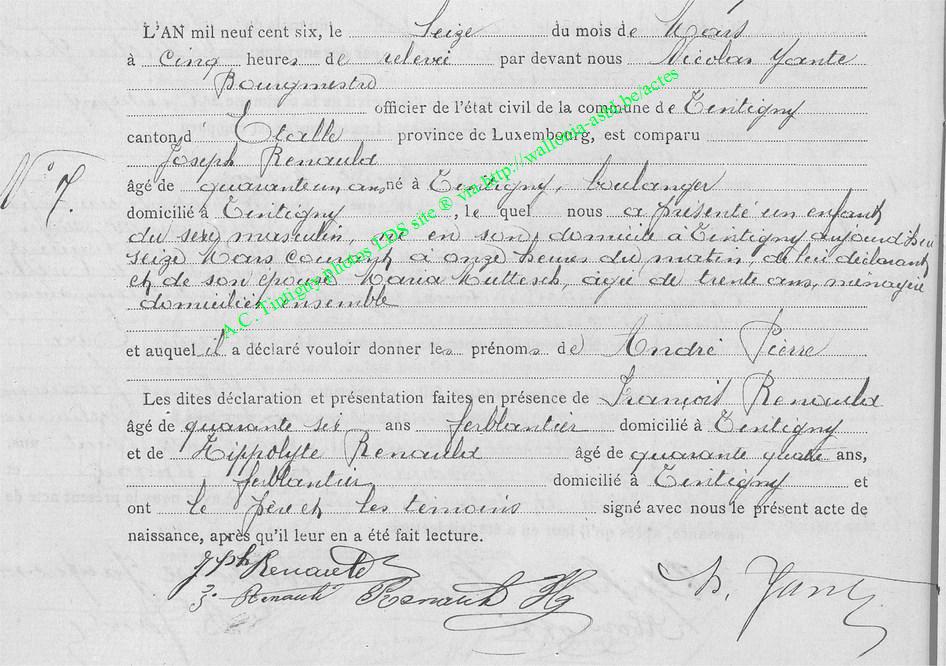 L'AN mil neuf cent six, le Seize du mois de Mars
à cinq heures de relevée par devant nous Nicolas Yante
Bourgmestre
officier de l'état civil de la commune de Tintigny
canton d'Etalle province de Luxembourg, est comparu
Joseph Renauld
N° 7.
âgé de quarante un ans né à Tintigny, boulanger
domicilié à Tintigny, le quel nous a présenté un enfant
du sexe masculin, né en son domicile à Tintigny aujourd'hui
seize Mars courant à onze heures du matin, de lui déclarant
et de son épouse Maria Muttesch, agée de trente ans, ménagère
domiciliés ensemble
et auquel il a déclaré vouloir donner les prénoms de André Pierre
Les dites déclaration et présentation faites en présence de François Renauld
âgé de quarante six ans ferblantier domicilié à Tintigny
et de Hippolyte Renauld âgé de quarante quatre ans,
ferblantier domicilié à Tintigny et
ont le père et les temoins signé avec nous le présent acte de
naissance, après qu'il leur en a été fait lecture.
Jph Renauld
Renauld Renauld Hg N. Yante
A.C. Tintigny Photos LDS site ® via http://wallonia-asbl.be/actes